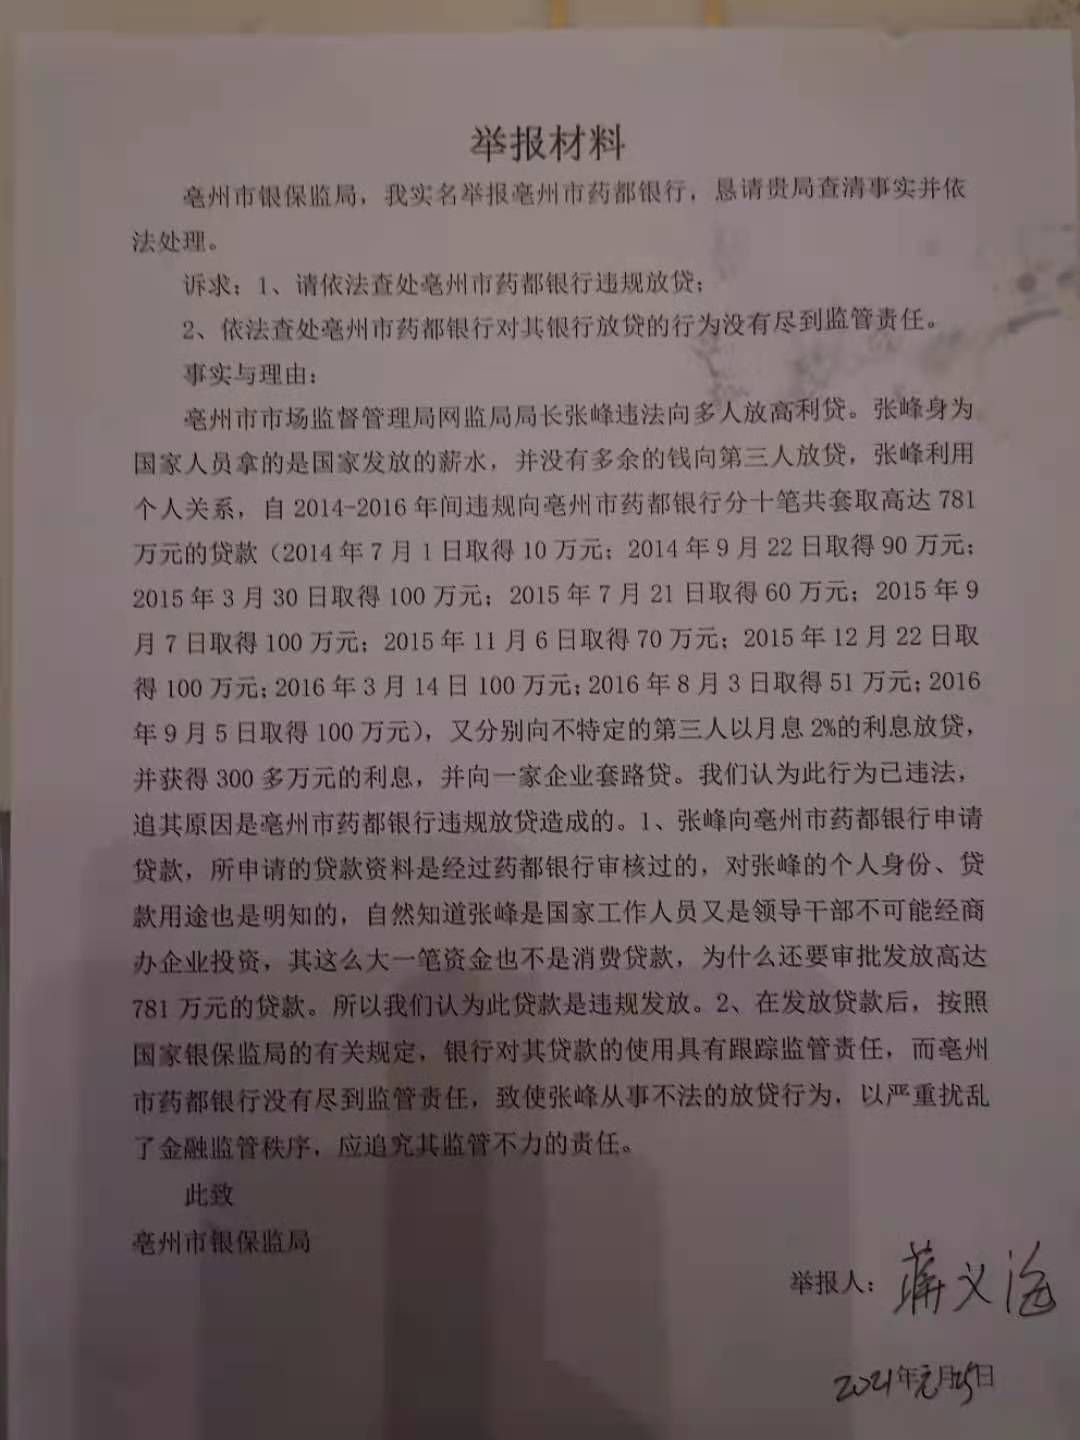 举报材料
亳州市银保监局，我实名举报亳州市药都银行，恳请贵局查清事实并依
法处理。
诉求：1、请依法查处亳州市药都银行违规放贷；
2、依法查处亳州市药都银行对其银行放贷的行为没有尽到监管责任。
事实与理由：
亳州市市场监督管理局网监局局长张峰违法向多人放高利贷。张峰身为
国家人员拿的是国家发放的薪水，并没有多余的钱向第三人放贷，张峰利用
个人关系，自 2014-2016 年间违规向亳州市药都银行分十笔共套取高达 781
万元的贷款（2014 年 7 月 1 日取得 10 万元；2014 年 9 月 22 日取得 90 万元；
2015 年 3 月 30 日取得 100 万元；2015 年 7 月 21 日取得 60 万元；2015 年 9
月 7 日取得 100 万元；2015 年 11 月 6 日取得 70 万元；2015 年 12 月 22 日取
得 100 万元；2016 年 3 月 14 日 100 万元；2016 年 8 月 3 日取得 51 万元；2016
年 9 月 5 日取得 100 万元），又分别向不特定的第三人以月息 2%的利息放贷，
并获得 300 多万元的利息，并向一家企业套路贷。我们认为此行为已违法，
追其原因是亳州市药都银行违规放贷造成的。1、张峰向亳州市药都银行申请
贷款，所申请的贷款资料是经过药都银行审核过的，对张峰的个人身份、贷
款用途也是明知的，自然知道张峰是国家工作人员又是领导干部不可能经商
办企业投资，其这么大一笔资金也不是消费贷款，为什么还要审批发放高达
781 万元的贷款。所以我们认为此贷款是违规发放。2、在发放贷款后，按照
国家银保监局的有关规定，银行对其贷款的使用具有跟踪监管责任，而亳州
市药都银行没有尽到监管责任，致使张峰从事不法的放贷行为，以严重扰乱
了金融监管秩序，应追究其监管不力的责任。
此致
亳州市银保监局
举报人：蒋义海
2021年元月25日